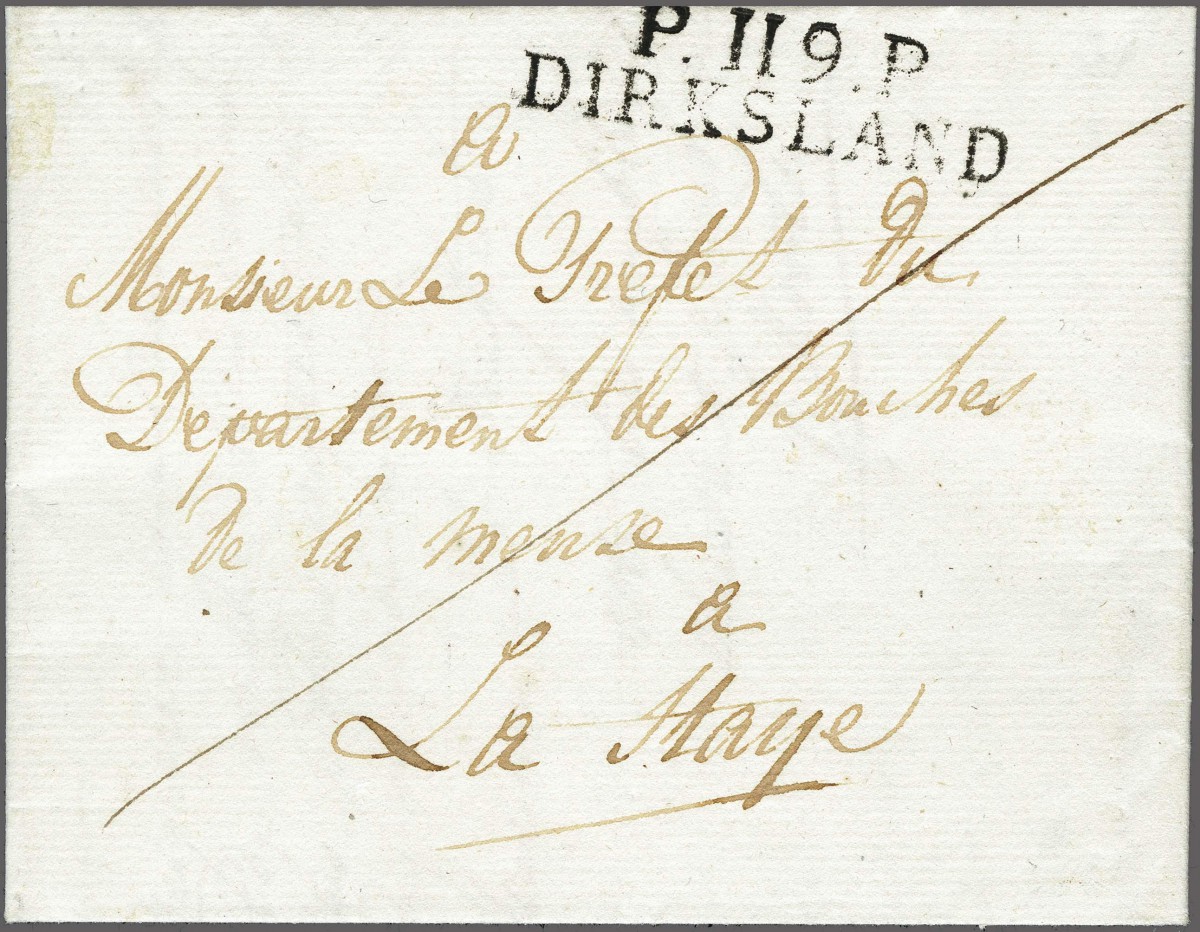 P.119.P
DIRKSLAND
a
Monsieur Le Prefet du
Departement des Bouches
de la meuse
a
La Haye